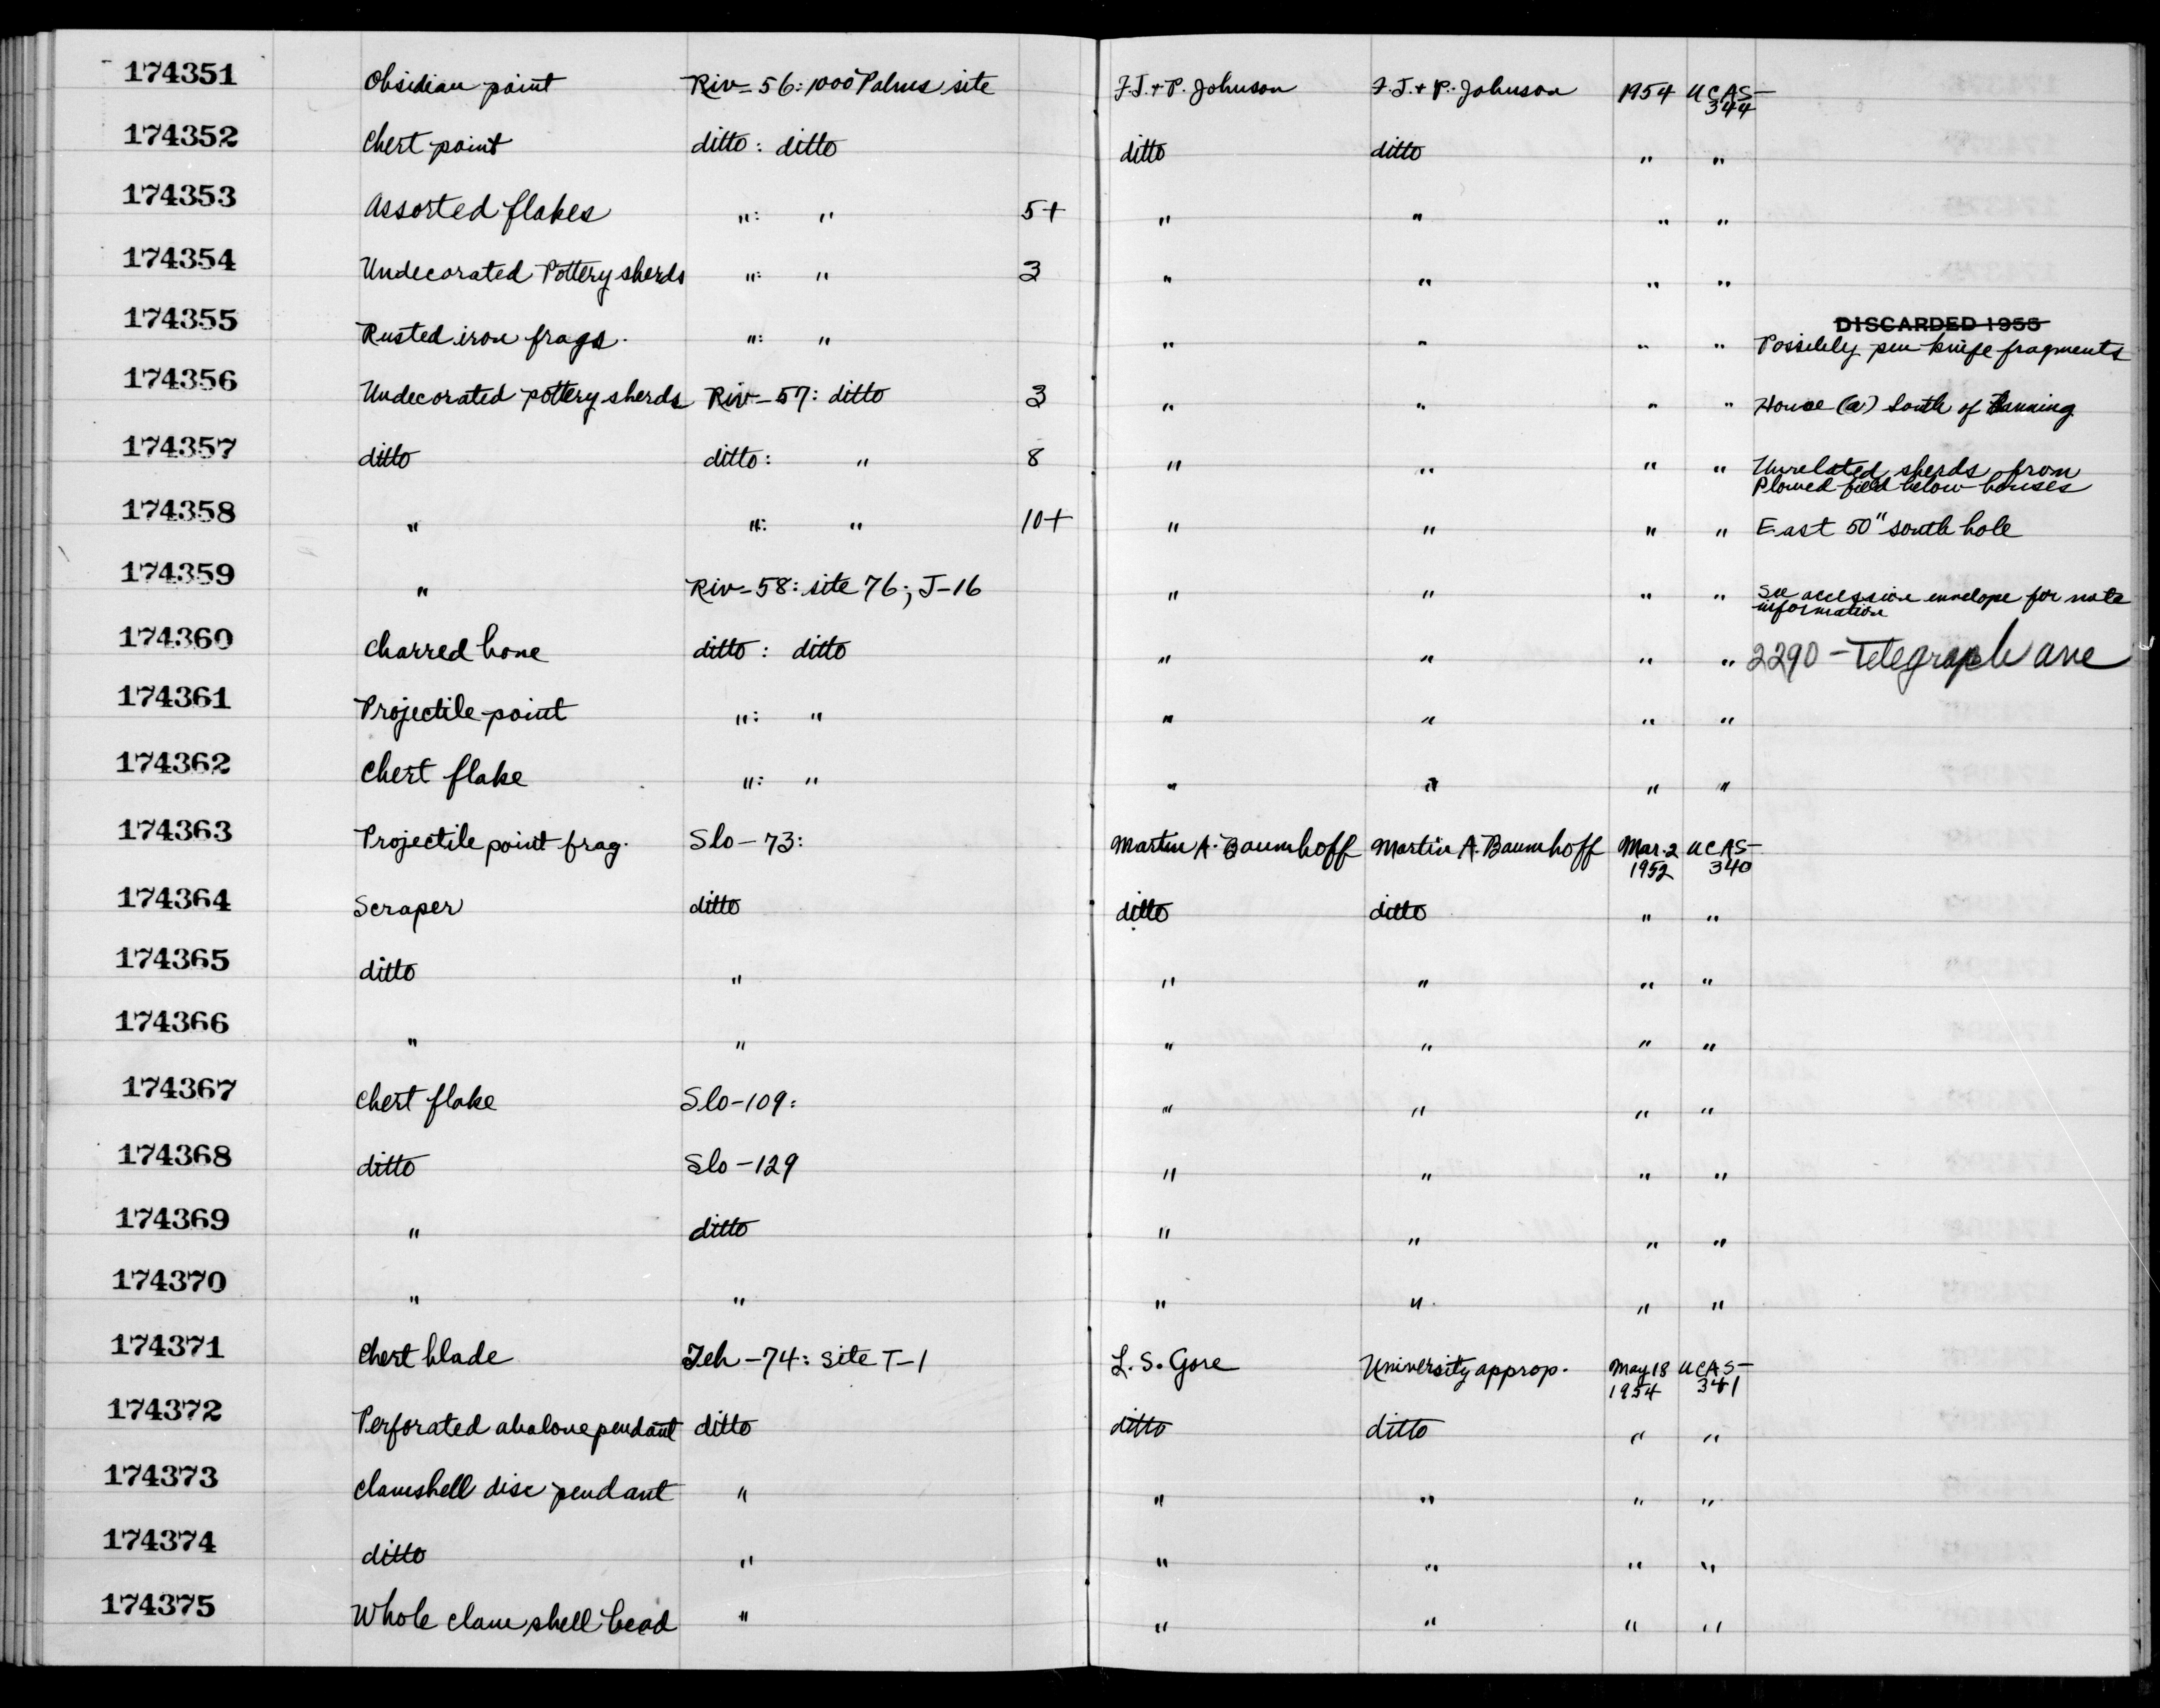 174351 Obsidian point Riv-56: 1000 Palms site F.J. + P. Johnson F.J. + P. Johnson 1954 UCAS-344
174352 Chert point ditto: ditto ditto ditto " "
174353 Assorted flakes ": " 5+ " " " "
174354 Undecorated Pottery sherds ": " 3 " " " "
174355 Rusted iron frags. ": " " " " " DISCARDED 1955
Possibly pen knife fragments
174356 Undecorated pottery sherds Riv-57: ditto 3 " " " " House (a) South of Banning
174357 ditto ditto: " 8 " " " " Unrelated sherds from
Plowed field below houses
174358 " ": " 10+ " " " " East 50" south hole
174359 " Riv-58: site 76; J-16 " " " " See accession envelope for note
information
174360 Charred bone ditto: ditto " " " " 2290 - Telegraph ave
174361 Projectile point ": " " " " "
174362 Chert flake ": " " " " "
174363 Projectile point frag. Slo-73: Martin A. Baumhoff Martin A. Baumhoff Mar. 2 1952 UCAS-340
174364 Scraper ditto ditto ditto " "
174365 ditto " " " " "
174366 " " " " " "
174367 Chert flake Slo-109: " " " "
174368 ditto Slo-129 " " " "
174369 " ditto " " " "
174370 " " " " " "
174371 Chert blade Teh-74: Site T-1 L. S. Gore University approp. May 18 1954 UCAS-341
174372 Perforated abalone pendant ditto ditto ditto " "
174373 Clamshell disc pendant " " " " "
174374 ditto " " " " "
174375 Whole clam shell bead " " " " "